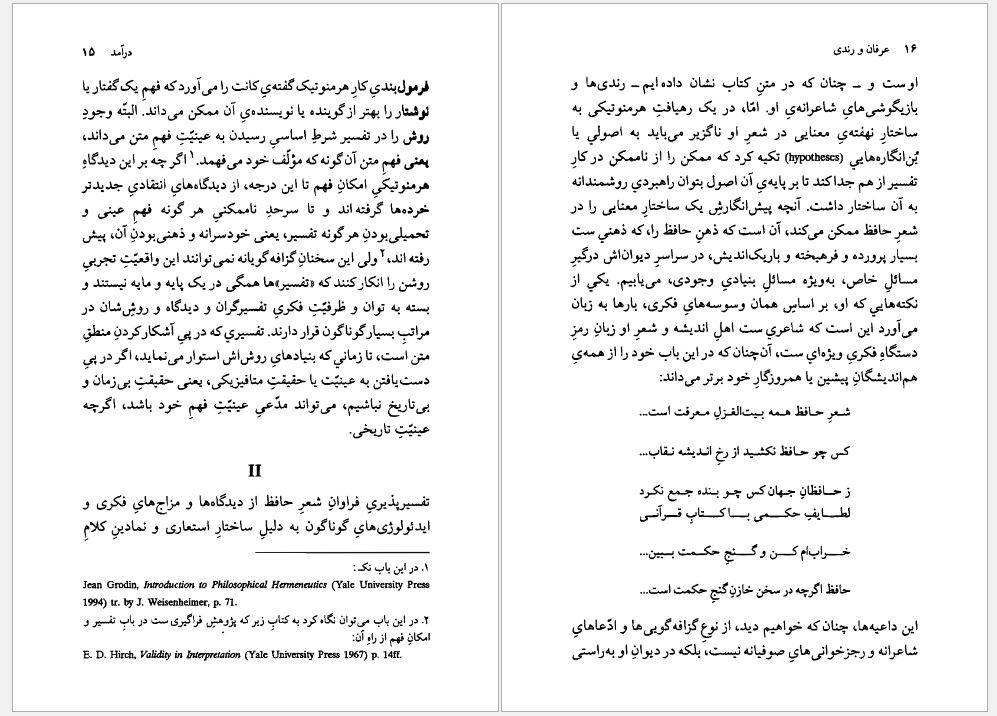 درآمد ۱۵
فرمول‌بندیِ کارِ هرمنوتیک گفته‌یِ کانت را می‌آورد که فهمِ یک گفتار یا
نوشتار را بهتر از گوینده یا نویسنده‌یِ آن ممکن می‌داند. البتّه وجودِ
روش را در تفسیر شرطِ اساسیِ رسیدن به عینیّتِ فهمِ متن می‌داند،
یعنی فهمِ متن آن گونه که مؤلّف خود می‌فهمد.۱ اگر چه بر این دیدگاهِ
هرمنوتیکیِ امکانِ فهم تا این درجه، از دیدگاه‌هایِ انتقادیِ جدیدتر
خرده‌ها گرفته‌اند و تا سرحدِ ناممکنیِ هر گونه فهمِ عینی و
تحمیلی‌بودنِ هر گونه تفسیر، یعنی خودسرانه و ذهنی‌بودنِ آن، پیش
رفته‌اند،۲ ولی این سخنانِ گزافه‌گویانه نمی‌توانند این واقعیّتِ تجربیِ
روشن را انکار کنند که «تفسیر»ها همگی در یک پایه و مایه نیستند و
بسته به توان و ظرفیّتِ فکریِ تفسیرگران و دیدگاه و روش‌شان در
مراتبِ بسیار گوناگون قرار دارند. تفسیري که در پیِ آشکارکردنِ منطقِ
متن است، تا زماني که بنیادهایِ روش‌اش استوار می‌نماید، اگر در پیِ
دست‌یافتن به عینیّت یا حقیقتِ متافیزیکی، یعنی حقیقتِ بی‌زمان و
بی‌تاریخ نباشیم، می‌تواند مدّعیِ عینیّتِ فهمِ خود باشد، اگرچه
عینیّتِ تاریخی.
II
تفسیرپذیریِ فراوانِ شعرِ حافظ از دیدگاه‌ها و مزاج‌هایِ فکری و
ایدئولوژی‌هایِ گوناگون به دلیلِ ساختارِ استعاری و نمادینِ کلامِ
۱. در این باب نکـ :
Jean Grodin, Introduction to Philosophical Hermeneutics (Yale University Press
1994) tr. by J. Weisenheimer, p. 71.
۲. در این باب می‌توان نگاه کرد به کتابِ زیر که پژوهشِ فراگیری ست در بابِ تفسیر و
امکانِ فهم از راهِ آن:
E. D. Hirch, Validity in Interpretation (Yale University Press 1967) p. 14ff.
۱۶ عرفان و رندی
اوست و ــ چنان که در متنِ کتاب نشان داده‌ایم ــ رندی‌ها و
بازیگوشی‌هایِ شاعرانه‌یِ او. امّا، در یک رهیافتِ هرمنوتیکی به
ساختارِ نهفته‌یِ معنایی در شعرِ او ناگزیر می‌باید به اصولي یا
بُن‌انگاره‌هایي (hypotheses) تکیه کرد که ممکن را از ناممکن در کارِ
تفسیر از هم جدا کند تا بر پایه‌یِ آن اصول بتوان راهبردیِ روشمندانه
به آن ساختار داشت. آنچه پیش‌انگارشِ یک ساختارِ معنایی را در
شعرِ حافظ ممکن می‌کند، آن است که ذهنِ حافظ را، که ذهني ست
بسیار پرورده و فرهیخته و باریک‌اندیش، در سراسرِ دیوان‌اش درگیرِ
مسائلِ خاص، به‌ویژه مسائلِ بنیادیِ وجودی، می‌یابیم. یکي از
نکته‌هایي که او، بر اساسِ همان وسوسه‌هایِ فکری، بارها به زبان
می‌آورد این است که شاعري ست اهلِ اندیشه و شعرِ او زبانِ رمزِ
دستگاهِ فکریِ ویژه‌ای ست، آن‌چنان که در این باب خود را از همه‌یِ
هم‌اندیشگانِ پیشین یا همروزگارِ خود برتر می‌داند:
شعرِ حافظ همه بیت‌الغزلِ معرفت است...
کس چو حافظ نکشید از رخِ اندیشه نقاب...
ز حافظانِ جهان کس چو بنده جمع نکرد
لطایفِ حکمی با کتابِ قرآنی
خراب‌ام کن و گنجِ حکمت ببین...
حافظ اگرچه در سخن خازنِ گنجِ حکمت است...
این داعیه‌ها، چنان که خواهیم دید، از نوعِ گزافه‌گویی‌ها و ادّعاهایِ
شاعرانه و رجزخوانی‌هایِ صوفیانه نیست، بلکه در دیوانِ او به‌راستی